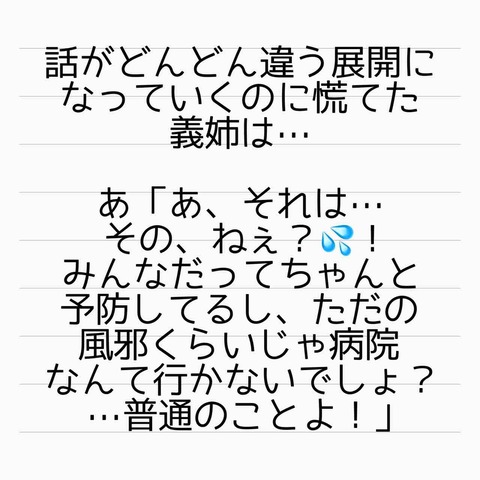 話がどんどん違う展開に
なっていくのに慌てた
義姉は…
あ「あ、それは…
その、ねぇ？💦！
みんなだってちゃんと
予防してるし、ただの
風邪くらいじゃ病院
なんて行かないでしょ？
…普通のことよ！」